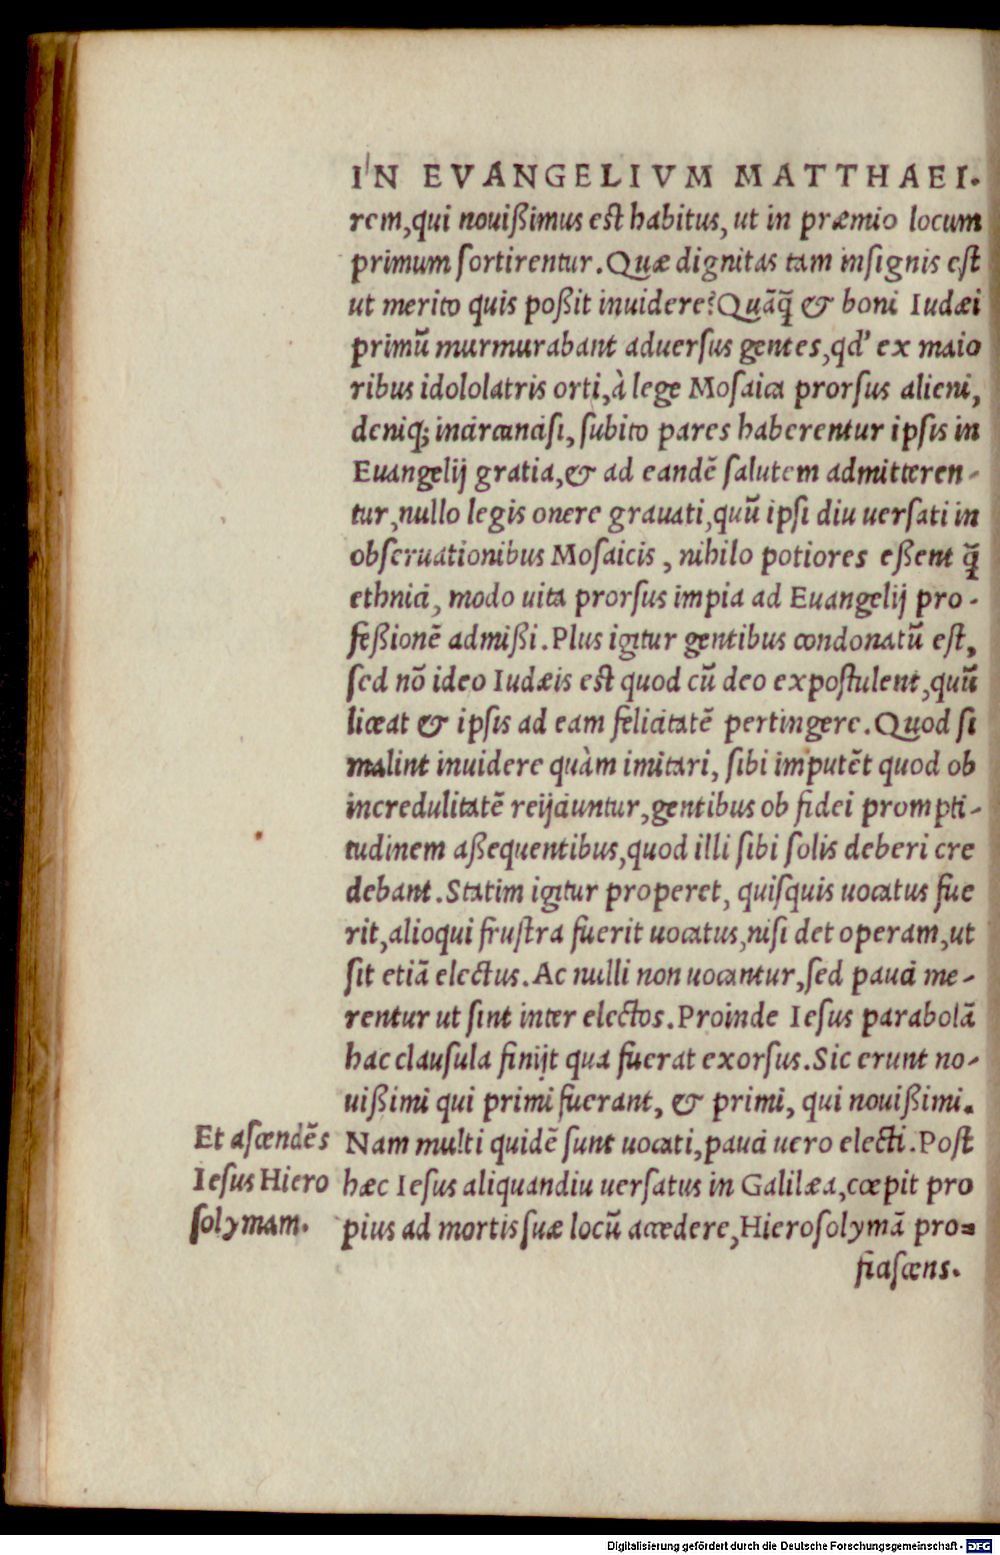 IN EVANGELIVM MATTHAEI.
rem,qui nouißimus est habitus, ut in præmio locum
primum ſortirentur. Quæ dignitas tam inſignis eſt
ut merito quis poßit inuidere? Quāq̄ & boni Iudæi
primū murmurabant aduerſus gentes, qd' ex maio
ribus idololatris orti, à lege Moſaica prorſus alieni,
deniq; incircunciſi, ſubito pares haberentur ipſis in
Euangelij gratia, & ad eandē ſalutem admitteren-
tur, nullo legis onere grauati, quū ipſi diu uerſati in
obſeruationibus Moſaicis, nihilo potiores eßent q̄
ethnici, modo uita prorſus impia ad Euangelij pro-
feßionē admißi. Plus igitur gentibus condonatū eſt,
ſed nō ideo Iudæis eſt quod cū deo expoſtulent, quū
liceat & ipſis ad eam felicitatē pertingere. Quod ſi
malint inuidere quàm imitari, ſibi imputēt quod ob
incredulitatē reijciuntur, gentibus ob fidei prompti-
tudinem aßequentibus, quod illi ſibi ſolis deberi cre
debant. Statim igitur properet, quiſquis uocatus fue
rit, alioqui fruſtra fuerit uocatus, niſi det operam, ut
ſit etiā electus. Ac nulli non uocantur, ſed pauci me-
rentur ut ſint inter electos. Proinde Ieſus parabolā
hac clauſula finijt qua fuerat exorſus. Sic erunt no-
uißimi qui primi fuerant, & primi, qui nouißimi.
Nam multi quidē ſunt uocati, pauci uero electi. Poſt
hæc Ieſus aliquandiu uerſatus in Galilæa, cœpit pro
pius ad mortis ſuæ locū accedere, Hieroſolymā pro-
ficiſcens.
Et aſcendēs
Ieſus Hiero
ſolymam.
Digitalisierung gefördert durch die Deutsche Forschungsgemeinschaft - DFG